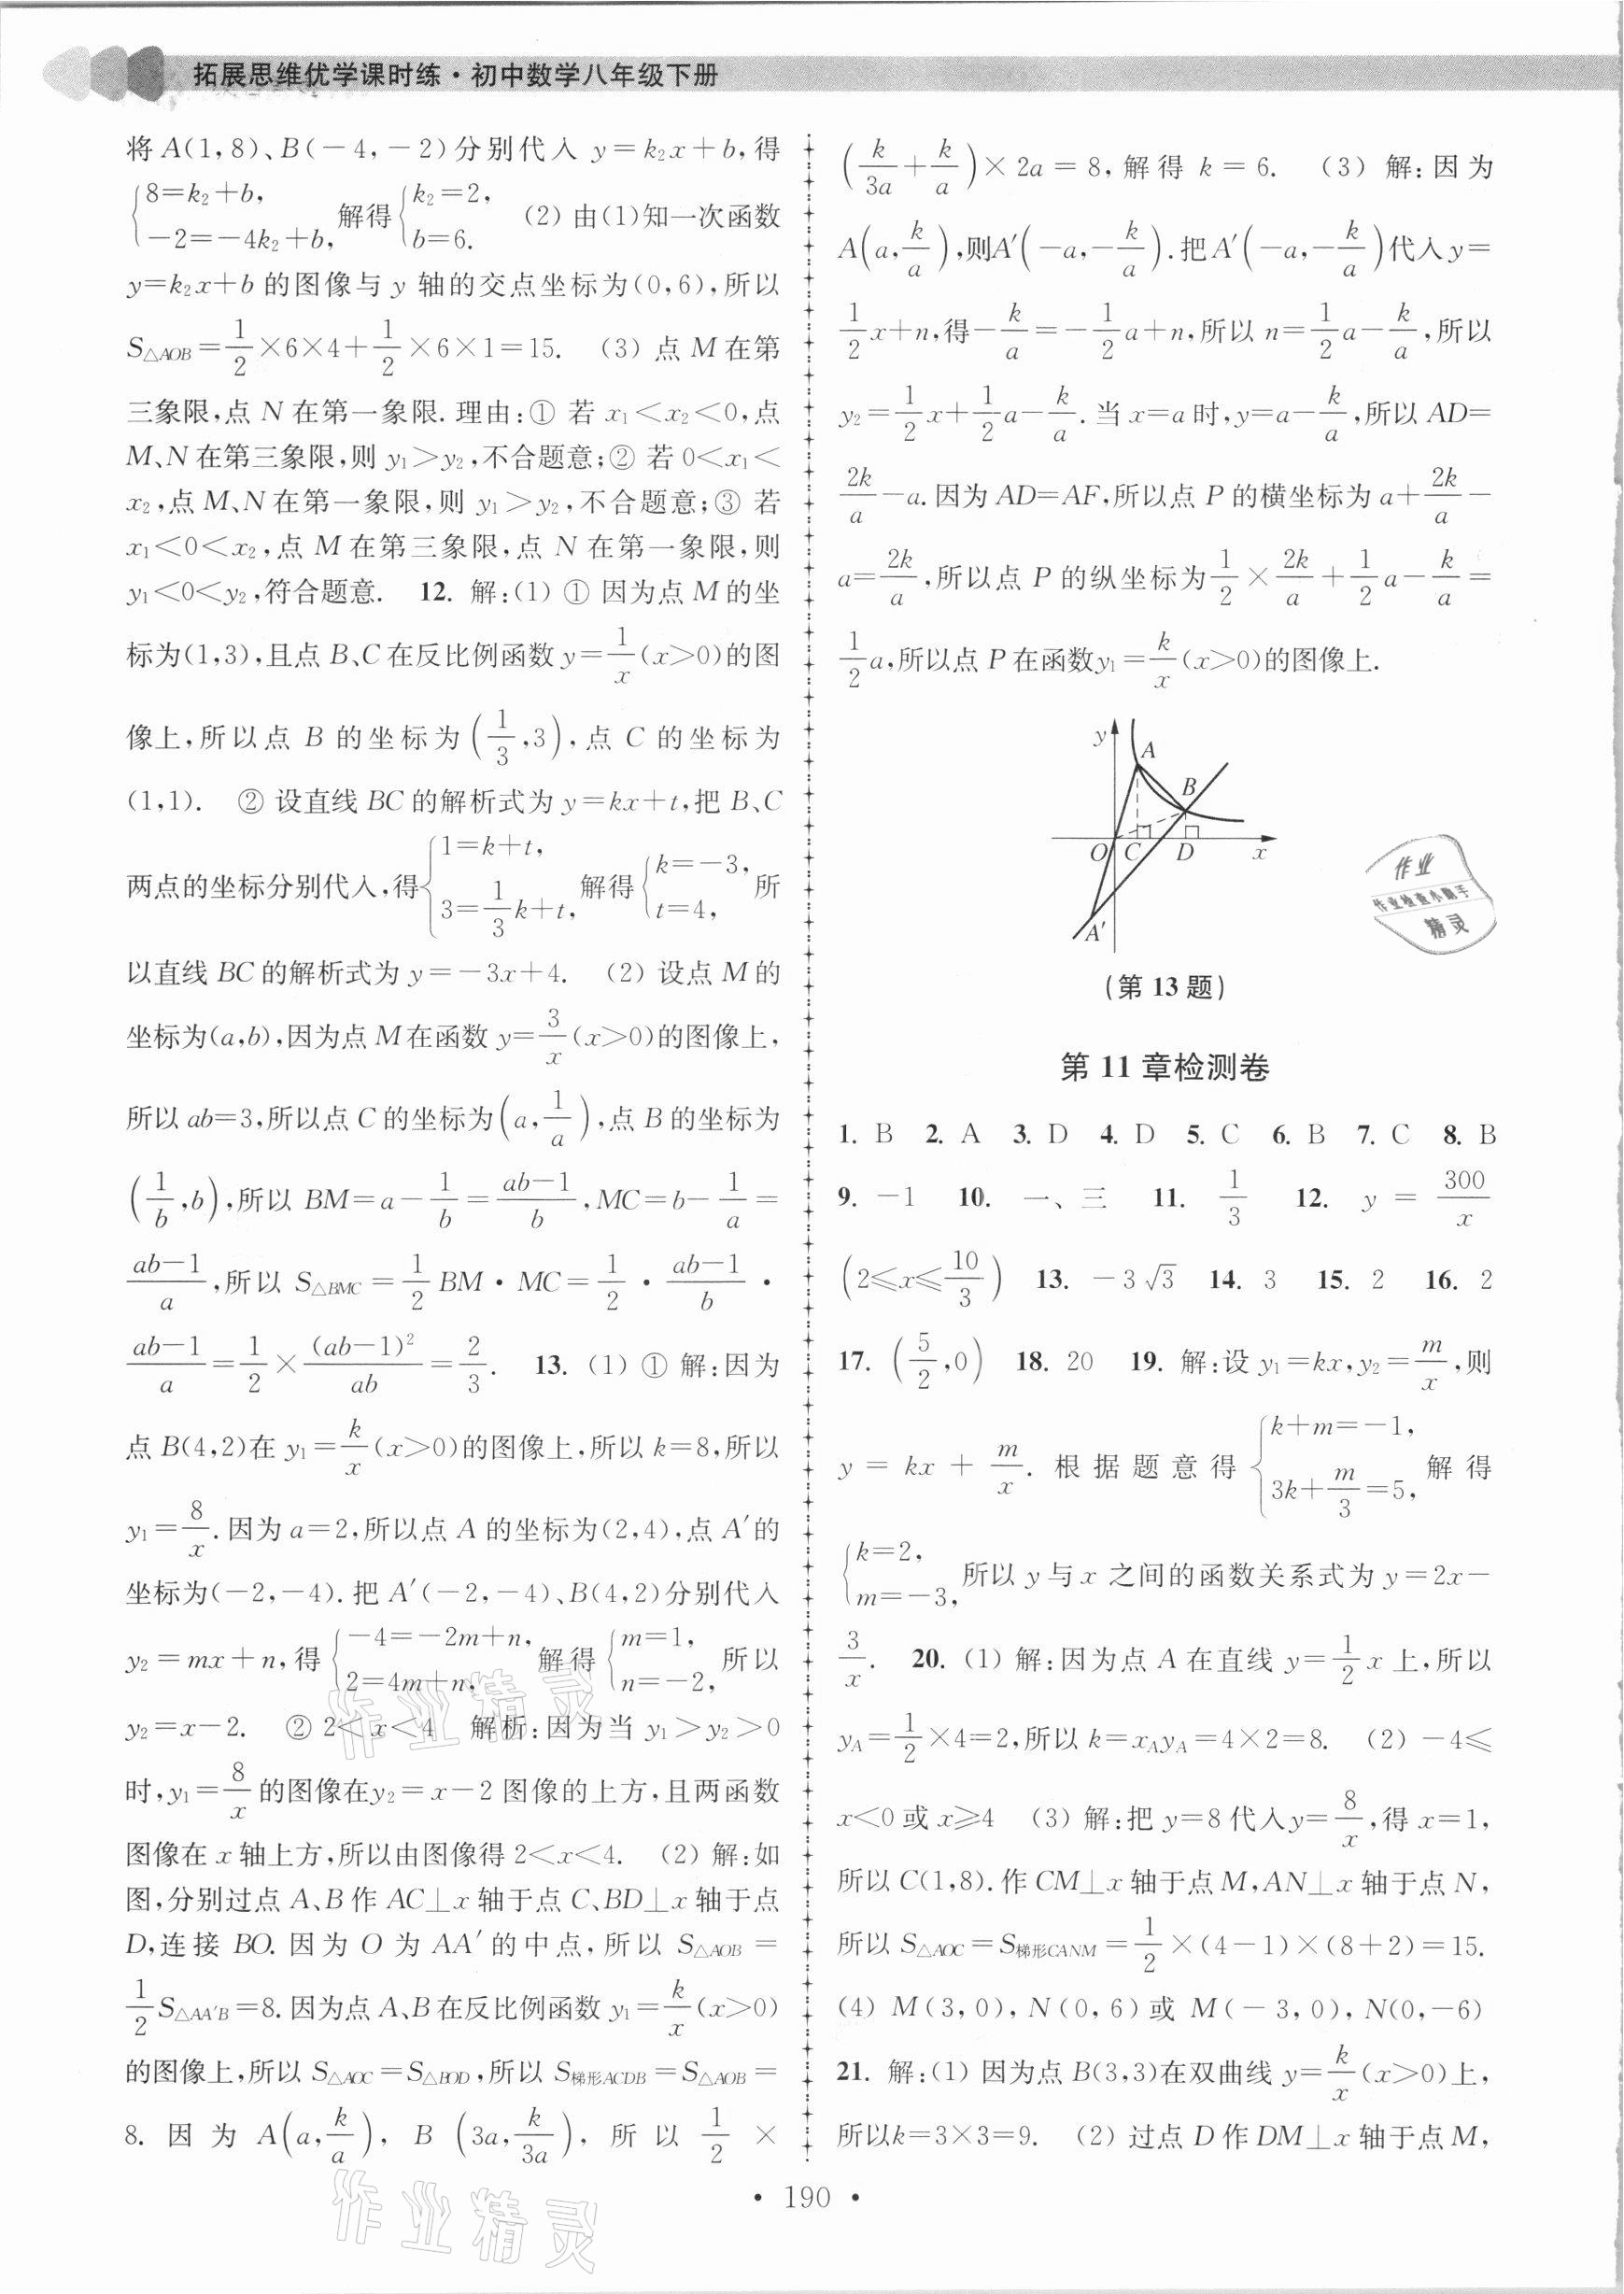 拓展思维优学课时练·初中数学八年级下册
将 A(1,8)、B(-4,-2)分别代入 y=k₂x+b,得
{8=k₂+b, -2=-4k₂+b, 解得{k₂=2, b=6. (2) 由(1)知一次函数
y=k₂x+b 的图像与 y 轴的交点坐标为(0,6),所以
S△AOB=1/2×6×4+1/2×6×1=15. (3) 点 M 在第
三象限,点 N 在第一象限. 理由:① 若 x₁<x₂<0,点
M、N 在第三象限,则 y₁>y₂,不合题意;② 若 0<x₁<
x₂,点 M、N 在第一象限,则 y₁>y₂,不合题意;③ 若
x₁<0<x₂,点 M 在第三象限,点 N 在第一象限,则
y₁<0<y₂,符合题意. 12. 解:(1) ① 因为点 M 的坐
标为(1,3),且点 B、C 在反比例函数 y=1/x(x>0)的图
像上,所以点 B 的坐标为(1/3,3),点 C 的坐标为
(1,1). ② 设直线 BC 的解析式为 y=kx+t,把 B、C
两点的坐标分别代入,得{1=k+t, 3=1/3k+t, 解得{k=-3, t=4, 所
以直线 BC 的解析式为 y=-3x+4. (2) 设点 M 的
坐标为(a,b),因为点 M 在函数 y=3/x(x>0)的图像上,
所以 ab=3,所以点 C 的坐标为(a,1/a),点 B 的坐标为
(1/b,b),所以 BM=a-1/b=(ab-1)/b,MC=b-1/a=
(ab-1)/a,所以 S△BMC=1/2BM·MC=1/2·(ab-1)/b·
(ab-1)/a=1/2×(ab-1)²/ab=2/3. 13. (1) ① 解:因为
点 B(4,2)在 y₁=k/x(x>0)的图像上,所以 k=8,所以
y₁=8/x.因为 a=2,所以点 A 的坐标为(2,4),点 A′的
坐标为(-2,-4). 把 A′(-2,-4)、B(4,2)分别代入
y₂=mx+n,得{-4=-2m+n, 2=4m+n, 解得{m=1, n=-2, 所以
y₂=x-2. ② 2<x<4 解析:因为当 y₁>y₂>0
时,y₁=8/x的图像在y₂=x-2 图像的上方,且两函数
图像在 x 轴上方,所以由图像得 2<x<4. (2) 解:如
图,分别过点 A、B 作 AC⊥x 轴于点 C、BD⊥x 轴于点
D,连接 BO. 因为 O 为 AA′的中点,所以 S△AOB=
1/2S△AA′B=8.因为点 A、B 在反比例函数 y₁=k/x(x>0)
的图像上,所以 S△AOC=S△BOD,所以 S梯形ACDB=S△AOB=
8. 因为 A(a,k/a), B(3a,k/3a), 所以 1/2×
(k/3a+k/a)×2a=8,解得 k=6. (3) 解:因为
A(a,k/a),则A′(-a,-k/a).把A′(-a,-k/a)代入y=
1/2x+n,得-k/a=-1/2a+n,所以 n=1/2a-k/a,所以
y₂=1/2x+1/2a-k/a.当 x=a 时,y=a-k/a,所以 AD=
2k/a-a.因为 AD=AF,所以点 P 的横坐标为 a+2k/a-
a=2k/a,所以点 P 的纵坐标为1/2×2k/a+1/2a-k/a=
1/2a,所以点 P 在函数y₁=k/x(x>0)的图像上.
y
A
B
O C D x
A′
(第 13 题)
作业
作业检查小助手
精灵
第 11 章检测卷
1. B 2. A 3. D 4. D 5. C 6. B 7. C 8. B
9. -1 10. 一、三 11. 1/3 12. y=300/x
(2≤x≤10/3) 13. -3√3 14. 3 15. 2 16. 2
17. (5/2,0) 18. 20 19. 解:设 y₁=kx,y₂=m/x,则
y=kx+m/x. 根据题意得{k+m=-1, 3k+m/3=5, 解得
{k=2, m=-3, 所以 y 与 x 之间的函数关系式为 y=2x-
3/x. 20. (1) 解:因为点 A 在直线 y=1/2x 上,所以
yA=1/2×4=2,所以 k=xAyA=4×2=8. (2) -4≤
x<0 或 x≥4 (3) 解:把 y=8 代入y=8/x,得 x=1,
所以 C(1,8).作 CM⊥x 轴于点 M,AN⊥x 轴于点 N,
所以 S△AOC=S梯形CANM=1/2×(4-1)×(8+2)=15.
(4) M(3,0), N(0,6)或 M(-3,0), N(0,-6)
21. 解:(1) 因为点 B(3,3)在双曲线 y=k/x(x>0)上,
所以k=3×3=9. (2) 过点 D 作 DM⊥x 轴于点 M,
作业精灵
作业精灵
· 190 ·